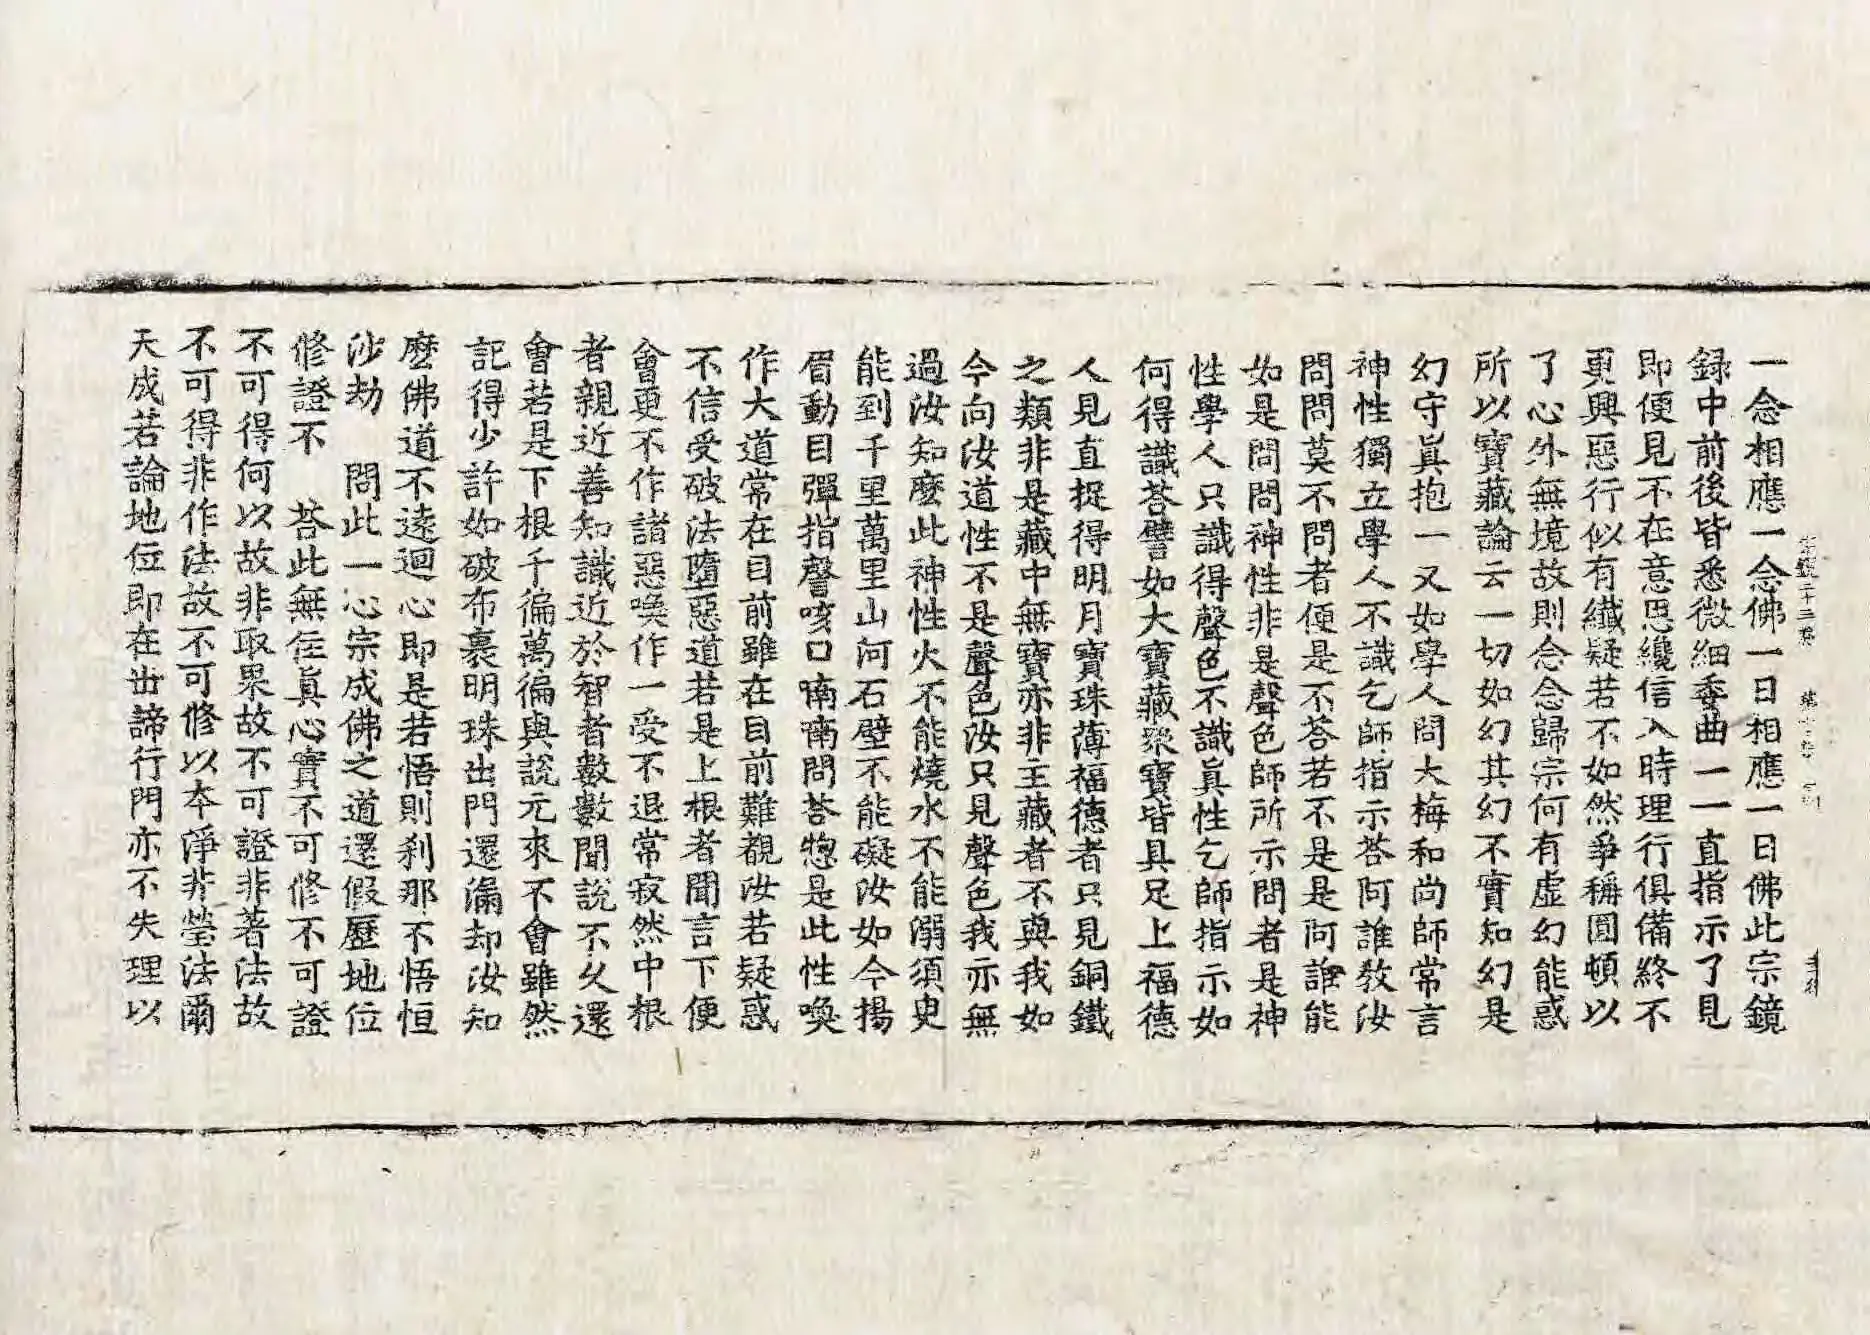 一念相應一念佛一日相應一日佛此宗鏡
録中前後皆悉微細委曲一一直指示了見
即便見不在意思纔信入時理行俱備終不
更興惡行似有纖疑若不如然爭稱圓頓以
了心外無境故則念念歸宗何有虛幻能惑
所以寶藏論云一切如幻其幻不實知幻是
幻守眞抱一又如學人問大梅和尚師常言
神性獨立學人不識乞師指示答阿誰教汝
問問莫不問者便是不答若不是是阿誰能
如是問問神性非是聲色師所示問者是神
性學人只識得聲色不識眞性乞師指示如
何得識荅譬如大寶藏衆寶皆具足上福德
人見直捉得明月寶珠薄福德者只見銅鐵
之類非是藏中無寶亦非王藏者不與我如
今向汝道性不是聲色汝只見聲色我亦無
過汝知麽此神性火不能燒水不能溺須臾
能到千里萬里山河石壁不能礙汝如今揚
眉動目彈指謦咳口喃喃問荅惣是此性喚
作大道常在目前雖在目前難覩汝若疑惑
不信受破法墮惡道若是上根者聞言下便
會更不作諸惡喚作一受不退常寂然中根
者親近善知識近於智者數數聞說不久還
會若是下根千徧萬徧與說元來不會雖然
記得少許如破布裹明珠出門還漏却汝知
麽佛道不遠迴心即是若悟則刹那不悟恒
沙劫 問此一心宗成佛之道還假歷地位
修證不 荅此無住眞心實不可修不可證
不可得何以故非取果故不可證非著法故
不可得非作法故不可修以本淨非瑩法爾
天成若論地位即在出諦行門亦不失理以